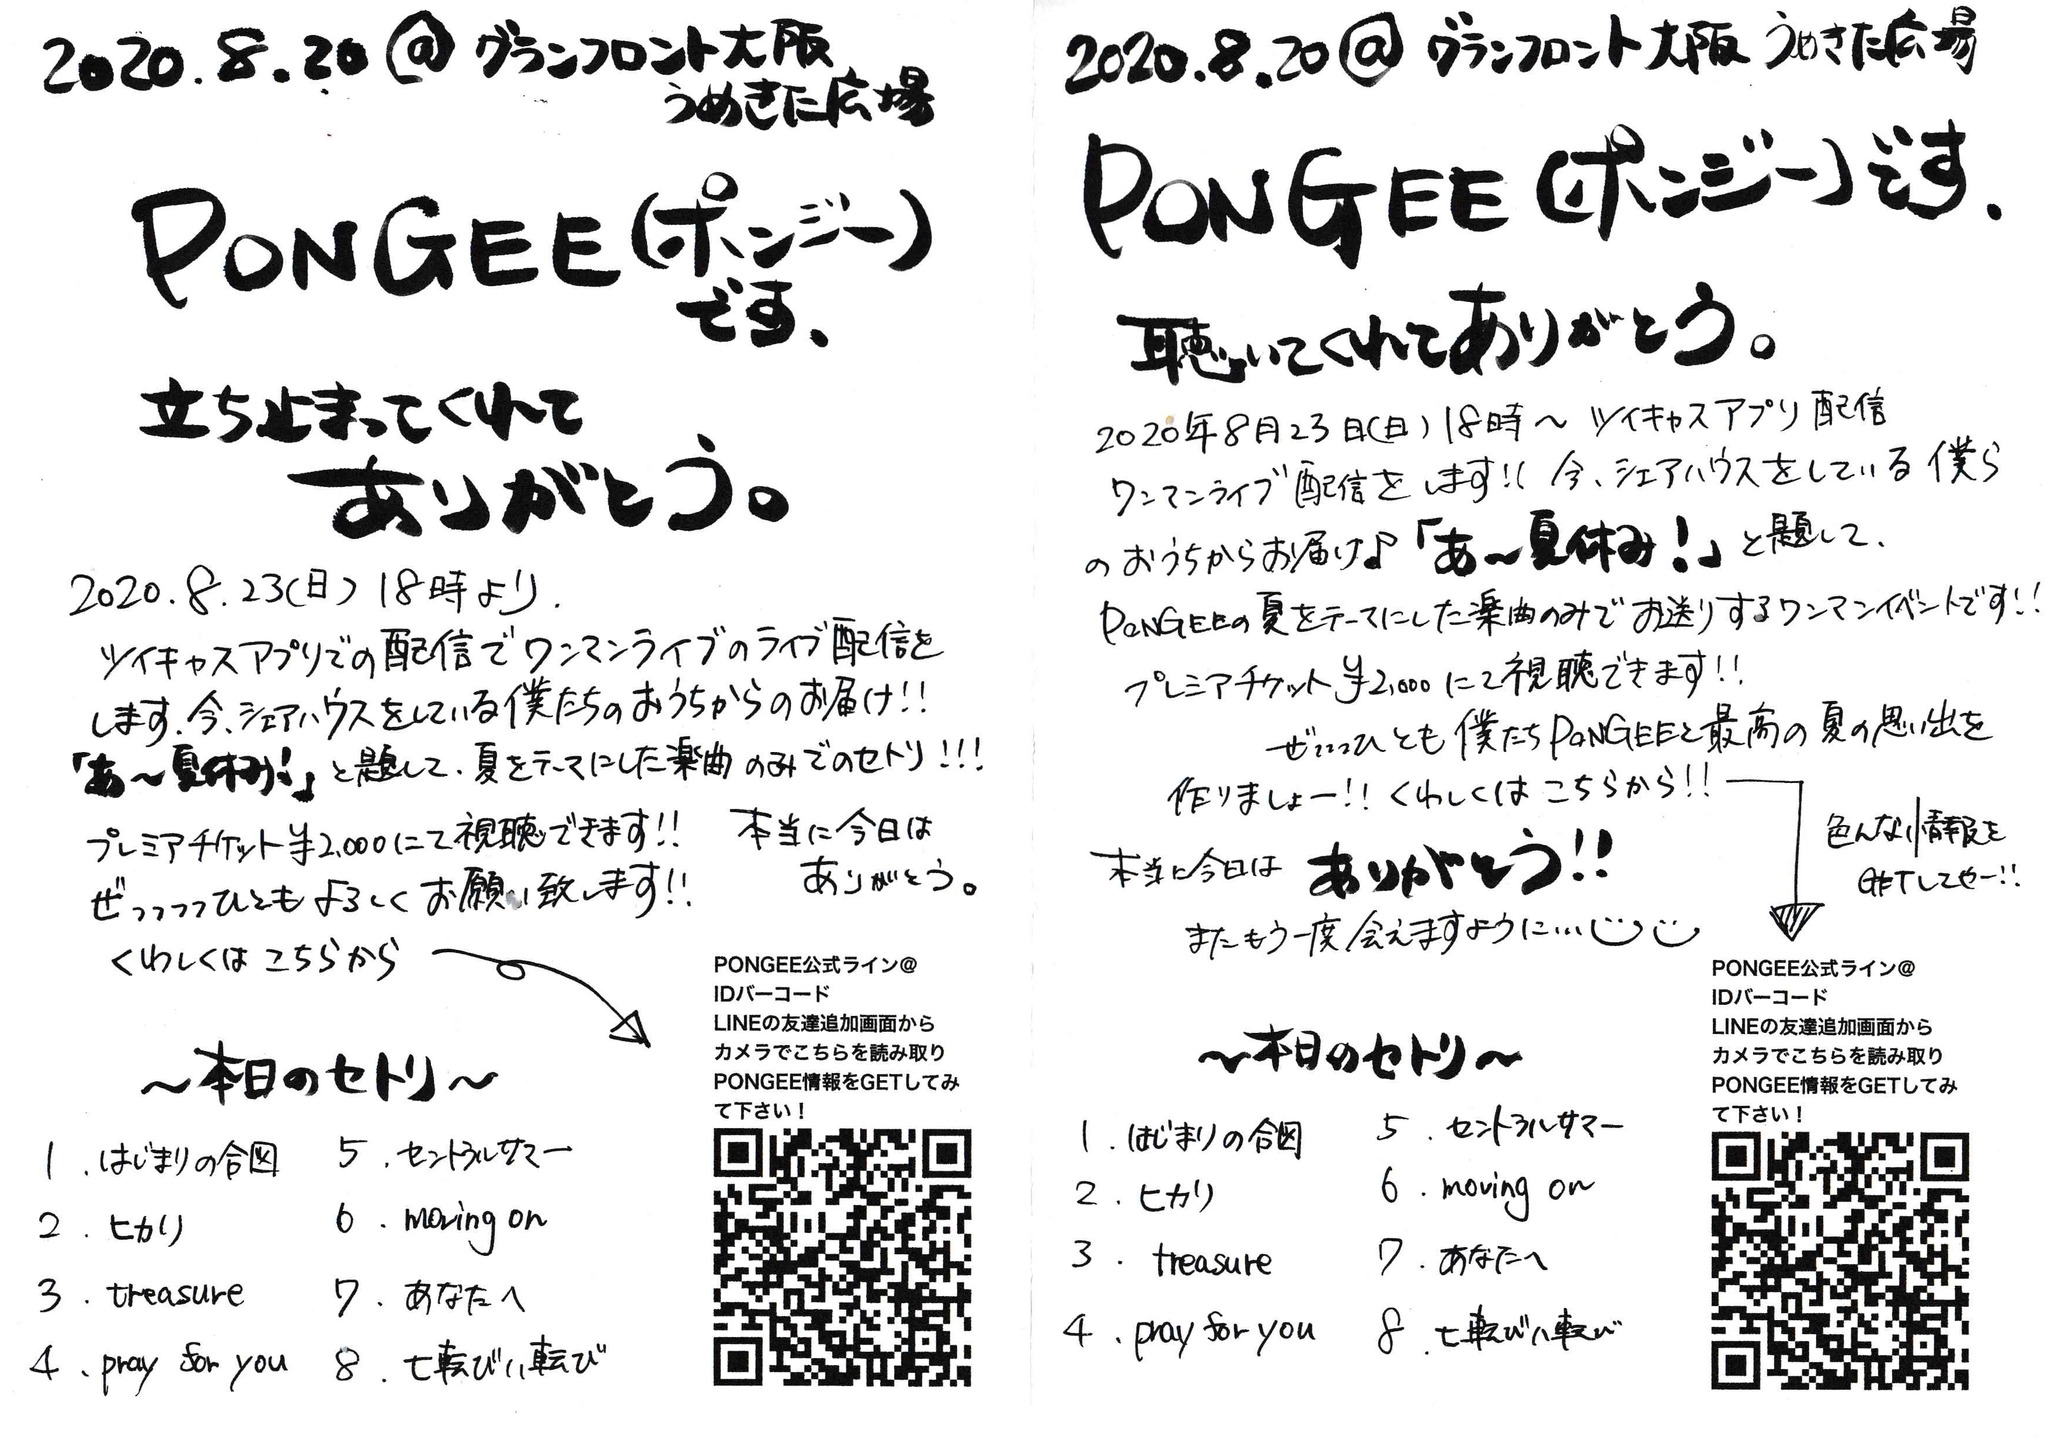 2020.8.20@グランフロント大阪
うめきた広場
PONGEE(ポンジー)
です.
立ち止まってくれて
ありがとう。
2020.8.23(日)18時より.
ツイキャスアプリでの配信でワンマンライブのライブ配信を
します.今、シェアハウスをしている僕たちのおうちからのお届け!!
「あ〜夏休み!」と題して、夏をテーマにした楽曲のみでのセトリ!!!
プレミアチケット¥2,000にて視聴できます!!
ぜっっっっひともよろしくお願い致します!!
本当に今日は
ありがとう。
くわしくはこちらから
PONGEE公式ライン@
IDバーコード
LINEの友達追加画面から
カメラでこちらを読み取り
PONGEE情報をGETしてみ
て下さい!
〜本日のセトリ〜
1.はじまりの合図
2.ヒカリ
3.treasure
4.pray for you
5.セントラルサマー
6.moving on
7.あなたへ
8.七転び八転び
2020.8.20@グランフロント大阪うめきた広場
PONGEE(ポンジー)です.
聴いてくれてありがとう。
2020年8月23日(日)18時〜ツイキャスアプリ配信
ワンマンライブ配信をします!!今、シェアハウスをしている僕ら
のおうちからお届け♪「あ〜夏休み!」と題して、
PONGEEの夏をテーマにした楽曲のみでお送りするワンマンイベントです!!
プレミアチケット¥2,000にて視聴できます!!
ぜっっっひとも僕たちPONGEEと最高の夏の思い出を
作りましょー!!くわしくはこちらから!!
色んな情報を
GETしてやー!!
本当に今日はありがとう!!
またもう一度会えますように…
PONGEE公式ライン@
IDバーコード
LINEの友達追加画面から
カメラでこちらを読み取り
PONGEE情報をGETしてみ
て下さい!
〜本日のセトリ〜
1.はじまりの合図
2.ヒカリ
3.treasure
4.pray for you
5.セントラルサマー
6.moving on
7.あなたへ
8.七転び八転び